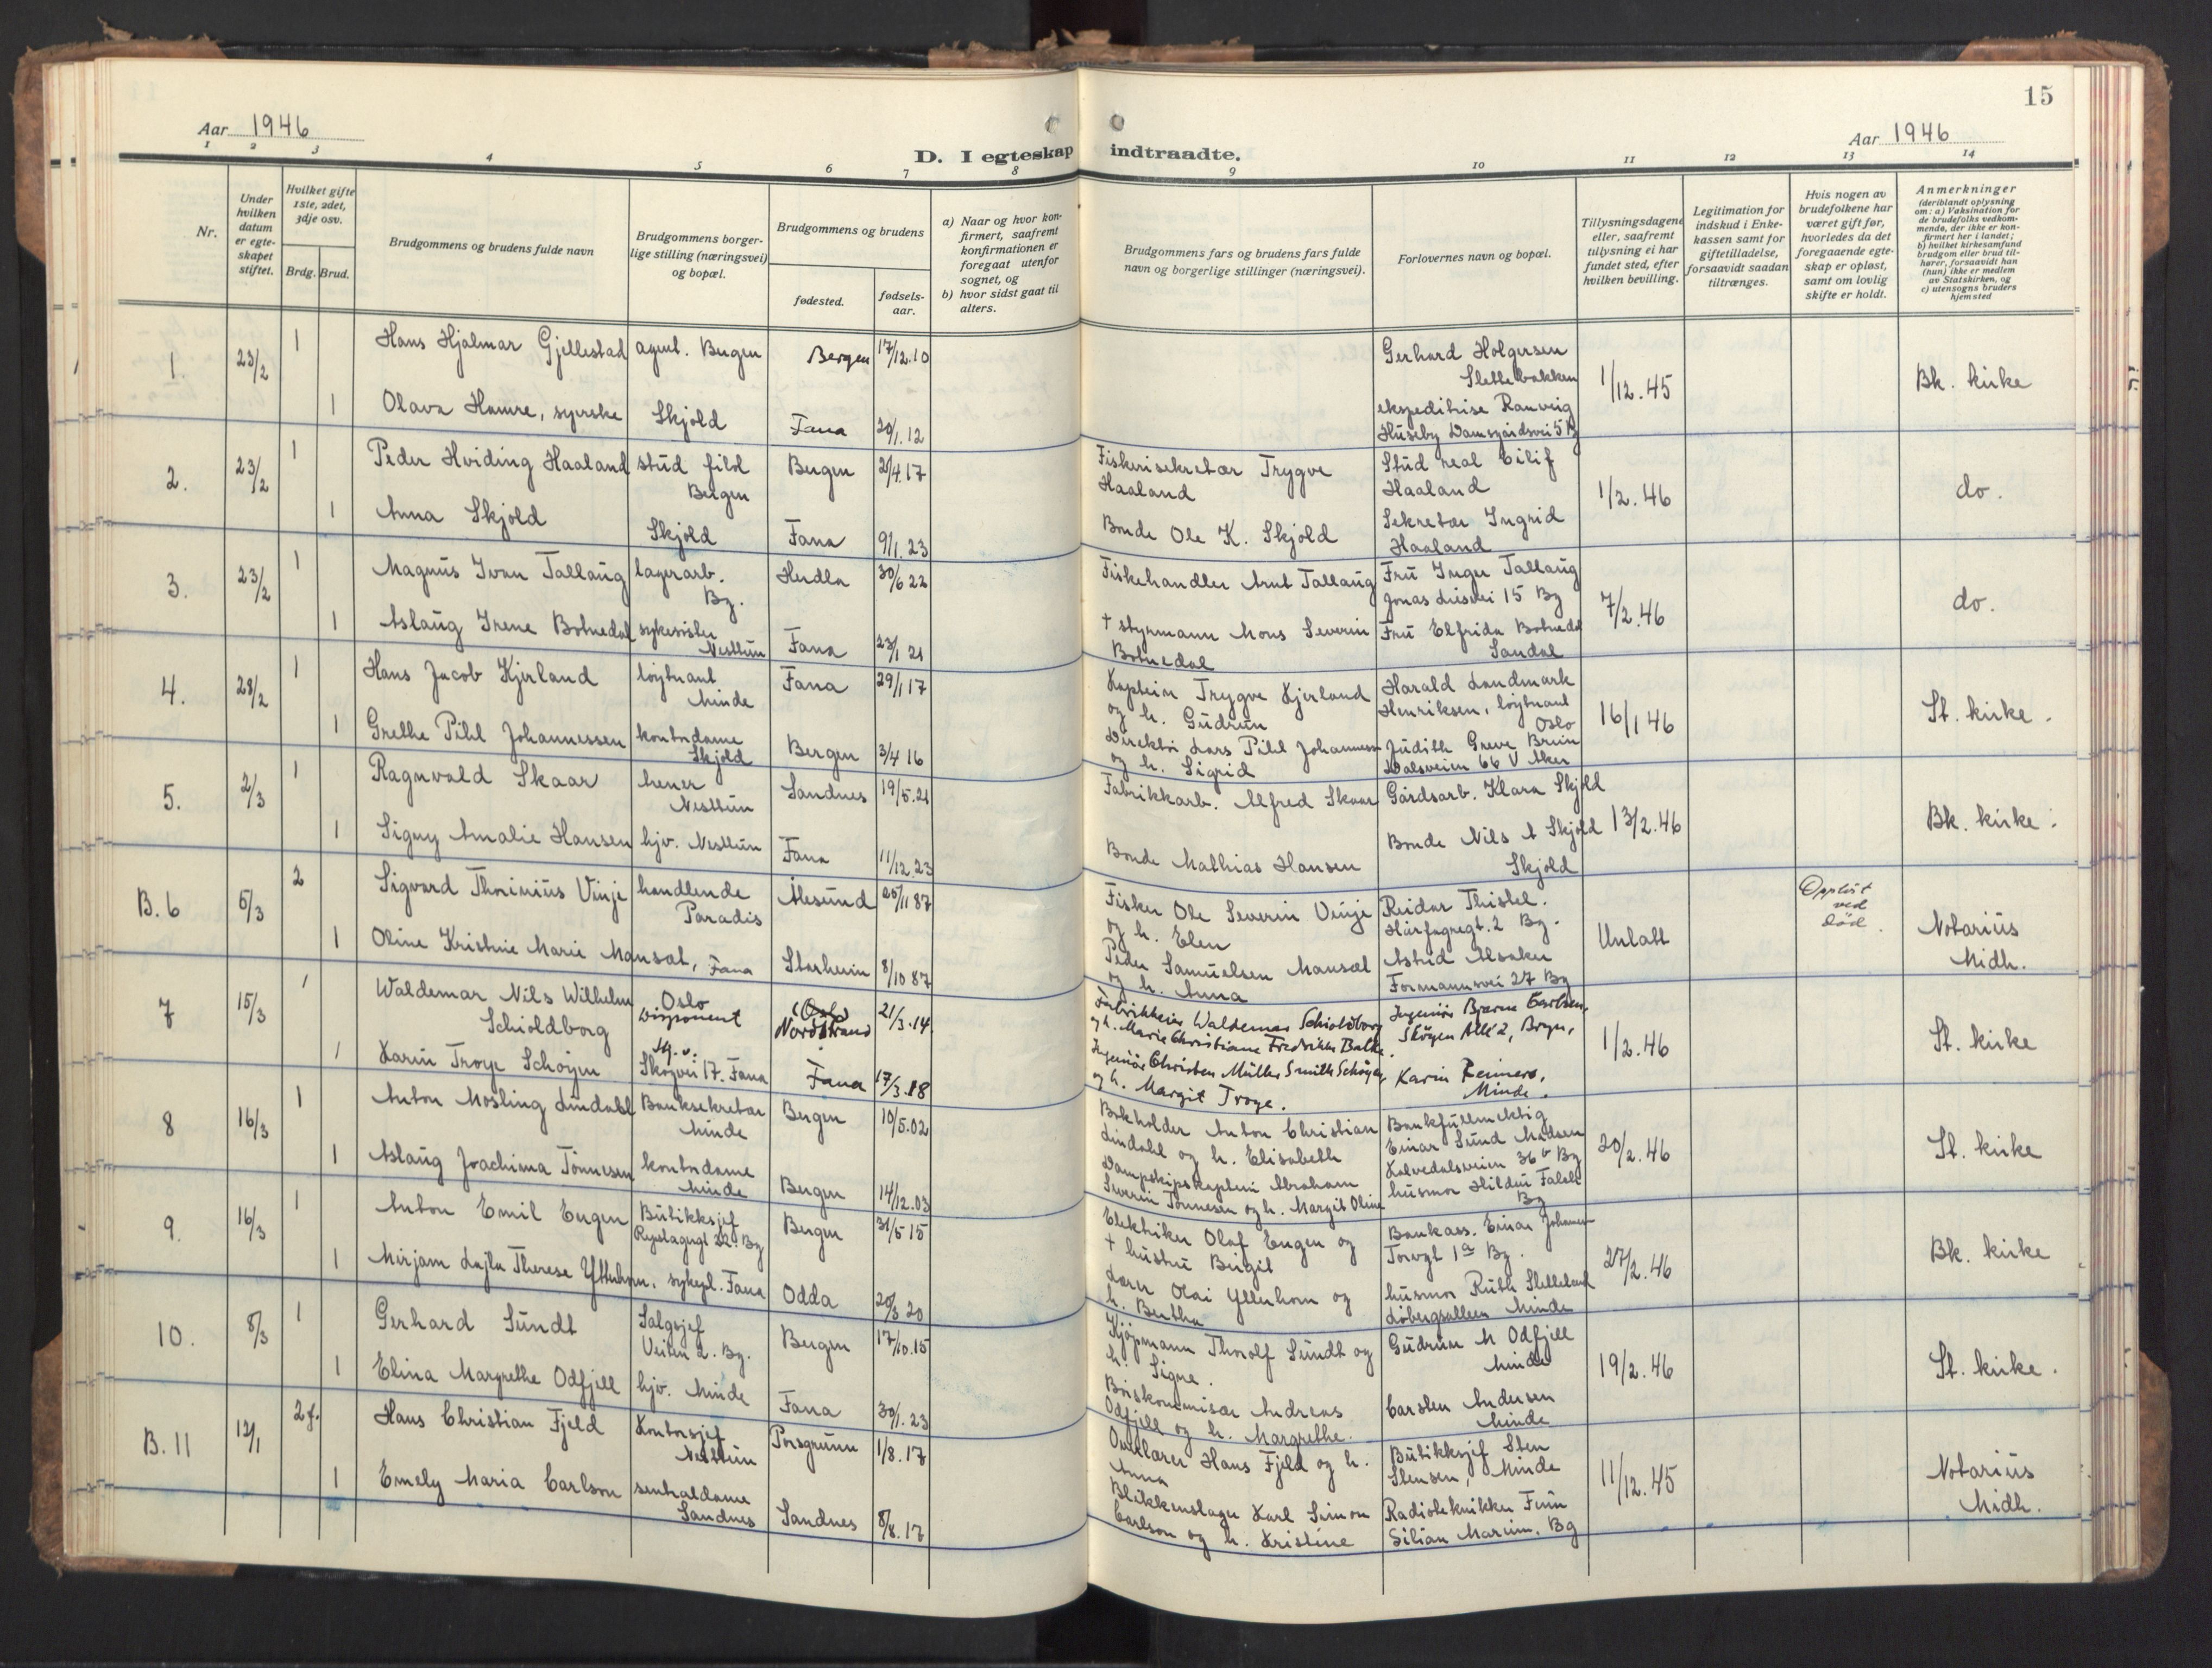 15
Aar 1946
Aar 1946
D. I egteskap indtraadte.
1 2 3 4 5 6 7 8 9 10 11 12 13 14
Nr.
Under hvilken datum er egteskapet stiftet.
Hvilket gifte 1ste, 2det, 3dje osv.
Brdg. Brud.
Brudgommens og brudens fulde navn
Brudgommens borgerlige stilling (næringsvei) og bopæl.
Brudgommens og brudens
fødested.
fødselsaar.
a) Naar og hvor konfirmert, saafremt konfirmationen er foregaat utenfor sognet, og
b) hvor sidst gaat til alters.
Brudgommens fars og brudens fars fulde navn og borgerlige stillinger (næringsvei).
Forlovernes navn og bopæl.
Tillysningsdagene eller, saafremt tillysning ei har fundet sted, efter hvilken bevilling.
Legitimation for indskud i Enkekassen samt for giftetilladelse, forsaavidt saadan tiltrænges.
Hvis nogen av brudefolkene har været gift før, hvorledes da det foregaaende egteskap er opløst, samt om lovlig skifte er holdt.
Anmerkninger (deriblandt oplysning om: a) Vaksination for de brudefolks vedkommende, der ikke er konfirmert her i landet; b) hvilket kirkesamfund brudgom eller brud tilhører, forsaavidt han (hun) ikke er medlem av Statskirken, og c) utensogns bruders hjemsted
1. 23/2 1 Hans Hjalmar Gjellestad agent. Bergen Bergen 17/12.10 Gerhard Holgersen Slettebakken 1/12.45 Bk. kirke
1 Olava Hamre, syerske Skjold Fana 20/1.12 ekspeditrise Ranveig Huseby Damsgårdsvei 5 Bg
2. 23/2 1 Peder Hviding Haaland stud filol Bergen Bergen 2/4.17 Fiskerisekretær Trygve Haaland Stud real Eilif Haaland 1/2.46 do.
1 Anna Skjold Skjold Fana 9/1.23 Bonde Ole K. Skjold Sekretær Ingrid Haaland
3. 23/2 1 Magnus Ivan Tallaug lagerarb. Bg. Herdla 30/6 22 Fiskehandler Arnt Tallaug Fru Inger Tallaug Jonas Liesvei 15 Bg 7/2.46 do.
1 Aslaug Irene Botnedal sykesøster Nesttun Fana 23/1 21 + styrmann Mons Severin Botnedal Fru Elfrida Botnedal Sandal
4. 28/2 1 Hans Jacob Kjerland løytnant Minde Fana 29/1 17 Kaptein Trygve Kjerland og h. Gudrun Harald Landmark Henriksen, løytnant Oslo 16/1 46 St. kirke.
1 Grethe Pihl Johannessen kontordame Skjold Bergen 3/4 16 Direktør Lars Pihl Johannessen og h. Sigrid Judith Greve Bruun Dalsveien 66 V Aker
5. 2/3 1 Ragnvald Skaar Nesttun Sandnes 19/5.21 Fabrikkarb. Alfred Skaar Gårdsarb. Klara Skjold 13/2.46 Bk. kirke.
1 Signy Amalie Hansen hjv. Nesttun Fana 11/12.23 Bonde Mathias Hansen Bonde Nils A Skjold Skjold
B. 6 5/3 2 Sigvard Thorinius Vinje handlende Paradis Ålesund 25/11 87 Fisker Ole Severin Vinje og h. Elen Reidar Thistel. Hårfagregt. 2 Bg. Utlatt Oppløst ved død. Notarius Midh.
1 Oline Kristine Marie Mansøl, Fana Storheim 8/10 87 Peder Samuelsen Mansøl og h. Anna Astrid Alsaker Formannsvei 27 Bg
7 15/3 1 Waldemar Nils Wilhelm Schioldborg Oslo Disponent (Oslo) Nordstrand 21/3.14. Fabrikkeier Waldemar Schioldborg og h. Marie Christiane Fredrikke Balke. Ingeniør Bjarne Carlsen, Skøyen Allé 2, Bryn, 1/2.46 St. kirke
1 Karin Troye Schøyen Skogvei 17. Fana Fana 17/3.18 Ingeniør Christen Müller Smith Schøyen, og h. Margit Troye. Karin Reimers, Minde.
8 16/3 1 Anton Mosling Lindahl Banksekretær Minde Bergen 10/5.02 Bokholder Anton Christian Lindahl og h. Elisabeth Bankfullmektig Einar Sund Madsen Kalvedalsveien 36 b Bg 20/2.46 St. kirke
1 Aslaug Joachima Tønnesen kontordame Minde Bergen 14/12.03 Dampskipskaptein Abraham Severin Tønnesen og h. Margit Oline husmor Hildur Falck Bg
9. 16/3 1 Anton Emil Eugen Butikksjef Bg Bergen 31/5 15 Elektriker Olaf Eugen og + hustru Birgit Bankass. Einar Johannes Torvgt 1a Bg. 27/2.46 Bk. kirke
1 Mirjam Lajla Therese Ytterhorn. sykepl. Fana Odda 20/3 20 Lærer Olai Ytterhorn og h. Bertha husmor Ruth Sletteland Løbergsalleen Minde
10. 8/3 1 Gerhard Sundt Salgsjef Veiten 2. Bg. Bergen 17/10.15 Kjøpmann Thorolf Sundt og h. Signe. Gudrun M Odfjell Minde 19/2.46 St. kirke.
1 Elina Margrethe Odfjell hjv. Minde Fana 30/1.23 Børskommisær Andreas Odfjell og h. Margrethe. Carsten Andersen Minde
B. 11 12/1 2 f. Hans Christian Fjeld Kontorsjef Nesttun Porsgrunn 1/8.17 Overlærer Hans Fjeld og h. Anna Butikksjef Sten Stensen, Minde 11/12.45 Notarius Midh.
1 Emely Maria Carlson sentraldame Sandnes Sandnes 8/8.17 Blikkenslager Karl Simon Carlson og h. Kristine Radiotekniker Finn Silian Marum. Bg